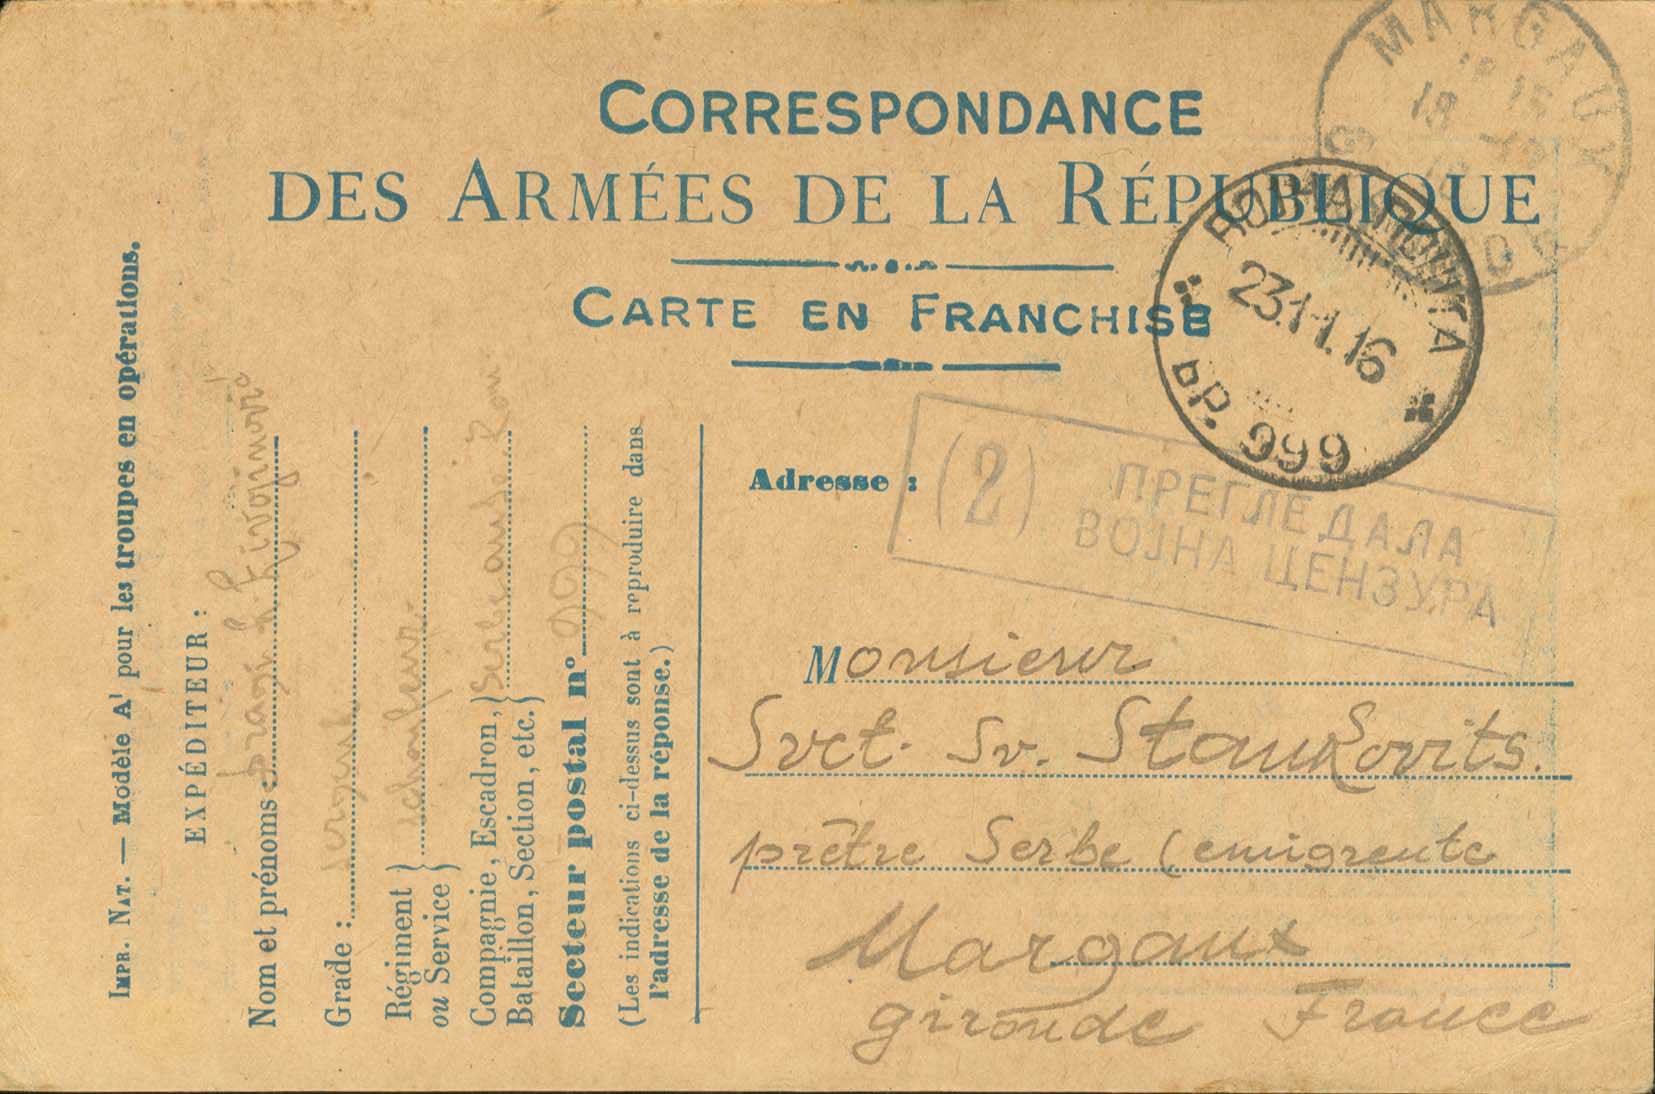 CORRESPONDANCE
DES ARMÉES DE LA RÉPUBLIQUE
CARTE EN FRANCHISE
MARGAUX
ВОЈНА ПОШТА
23.11.16
БР. 999
(2)
ПРЕГЛЕДАЛА
ВОЈНА ЦЕНЗУРА
Adresse :
Monsieur
Svet. Sv. Stankovits.
prêtre Serbe (emigrente
Margaux
gironde France
IMPR. NAT. — Modèle A¹ pour les troupes en opérations.
EXPÉDITEUR :
Nom et prénoms :
Grade :
Régiment
ou Service }
Compagnie, Escadron,
Bataillon, Section, etc. }
Secteur postal n° 999
(Les indications ci-dessus sont à reproduire dans
l'adresse de la réponse.)